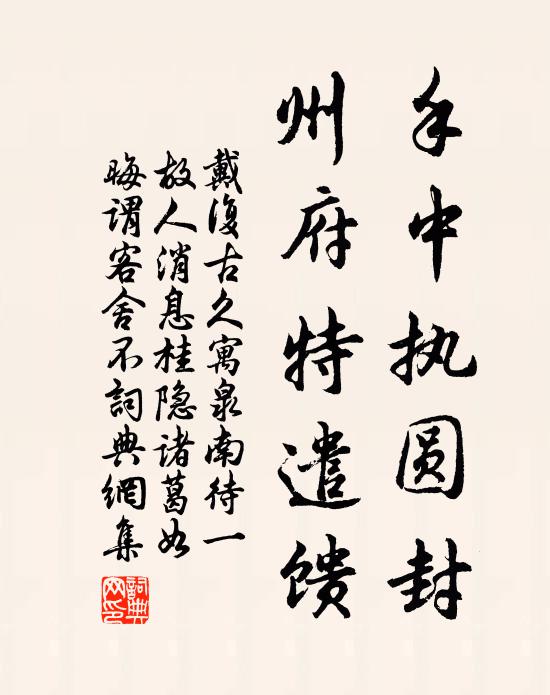 手中执圆封
州府特遣馈
戴復古久寓泉南待一
故人消息桂隐诸葛如
晦谓客舍不詞典網集
詞典
网印